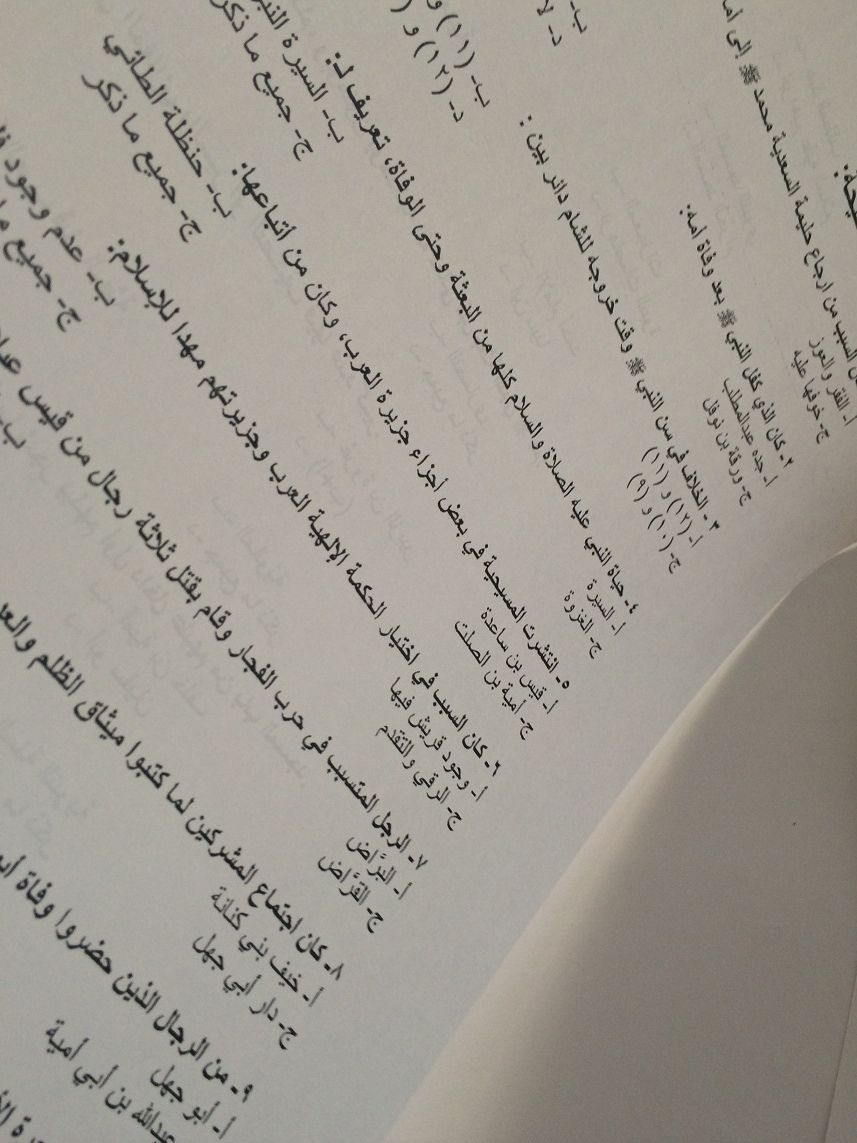 السبب من ارجاع حليمة السعدية محمد ﷺ إلى
أ- الفقر والعوز
ج- خوفها عليه
٢- كان الذي كفل النبي ﷺ بعد وفاة أمه:
أ- جده عبدالمطلب
ج- ورقة بن نوفل
٣- الخلاف في سن النبي ﷺ وقت خروجه للشام دائر بين:
أ- (١٢) و (١١) ب- (١١) و
ج- (١٠) و (٩) د- (١٢) و
٤- حياة النبي عليه الصلاة والسلام كلها من البعثة وحتى الوفاة، تعريف لـ:
أ- السيرة ب- السيرة
ج- الغزوة ج- جميع ما ذكر
٥- انتشرت المسيحية في بعض أجزاء جزيرة العرب، وكان من أتباعها:
أ- قيس بن ساعدة ب- حنظلة الطائي
ج- أمية بن الصلت ج- جميع ما ذكر
٦- كان السبب في اختيار الحكمة الإلهية العرب وجزيرتهم مهدا للإسلام:
أ- وجود قريش فيها ب- عدم وجود
ج- الرقي والتقدم ج- جميع
٧- الرجل المتسبب في حرب الفجار وقام بقتل ثلاثة رجال من قيس
أ- البرَّاض ب-
ج- القرَّاض
٨- كان اجتماع المشركين لما كتبوا ميثاق الظلم
أ- خيف بني كنانة
ج- دار أبي جهل
٩- من الرجال الذين حضروا وفاة
أ- أبو جهل
عبدالله بن أبي أمية